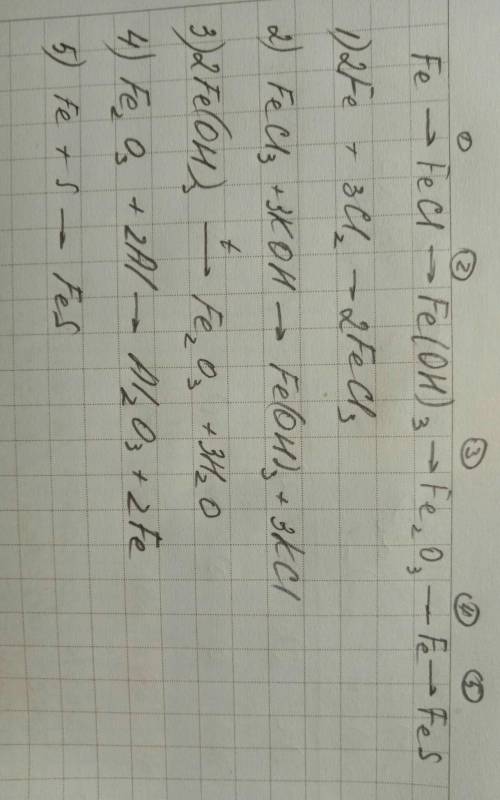 ① ② ③ ④ ⑤
Fe → FeCl → Fe(OH)₃ → Fe₂O₃ → Fe → FeS
1) 2Fe + 3Cl₂ → 2FeCl₃
2) FeCl₃ + 3KOH → Fe(OH)₃ + 3KCl
3) 2Fe(OH)₃ t→ Fe₂O₃ + 3H₂O
4) Fe₂O₃ + 2Al → Al₂O₃ + 2Fe
5) Fe + S → FeS